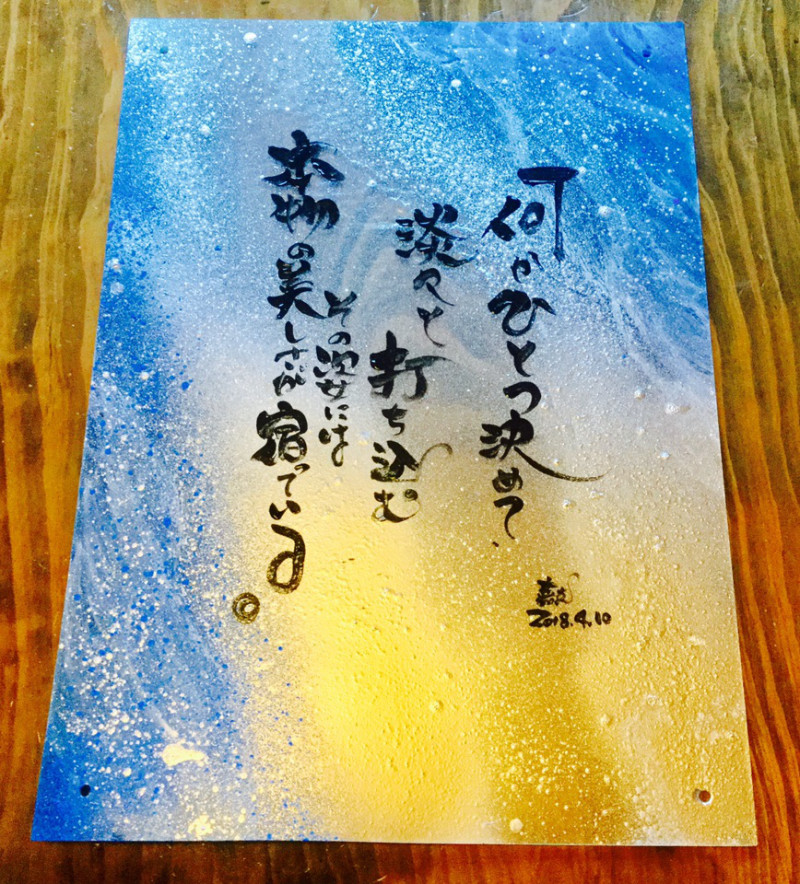 何かひとつ決めて、
淡々と
打ち込む
その姿には
本物の美しさが宿っている。
2018.4.10